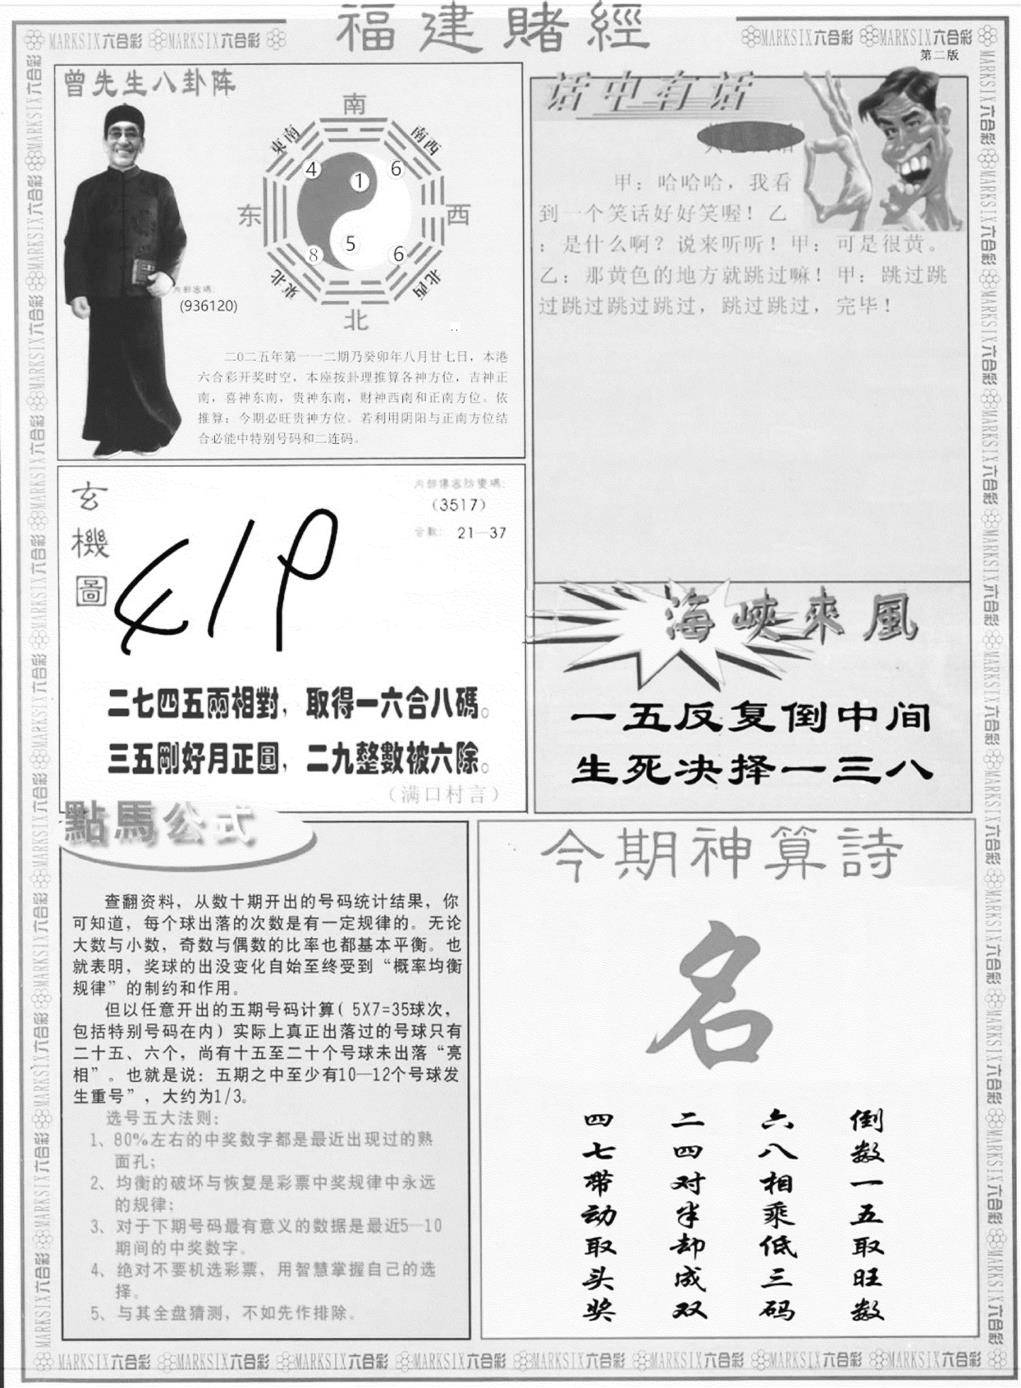 福建賭經
MARKSIX六合彩 MARKSIX六合彩
MARKSIX六合彩 MARKSIX六合彩
第二版
曾先生八卦阵
南
東南
南西
4
1
6
东
西
5
8
6
東北
北西
北
内部密码:
(936120)
二0二五年第一一二期乃癸卯年八月廿七日，本港
六合彩开奖时空，本座按卦理推算各神方位，吉神正
南，喜神东南，贵神东南，财神西南和正南方位。依
推算：今期必旺贵神方位。若利用阴阳与正南方位结
合必能中特别号码和二连码。
话中有话
甲：哈哈哈，我看
到一个笑话好好笑喔！乙
：是什么啊？说来听听！甲：可是很黄。
乙：那黄色的地方就跳过嘛！甲：跳过跳
过跳过跳过跳过，跳过跳过，完毕！
玄機圖
内部傳密防變碼:
(3517)
合數: 21—37
二七四五兩相對，取得一六合八碼。
三五剛好月正圓，二九整數被六除。
（满口村言）
海峽來風
一五反复倒中间
生死决择一三八
點馬公式
查翻资料，从数十期开出的号码统计结果，你
可知道，每个球出落的次数是有一定规律的。无论
大数与小数，奇数与偶数的比率也都基本平衡。也
就表明，奖球的出没变化自始至终受到“概率均衡
规律”的制约和作用。
但以任意开出的五期号码计算( 5X7=35球次，
包括特别号码在内）实际上真正出落过的号球只有
二十五、六个，尚有十五至二十个号球未出落“亮
相”。也就是说：五期之中至少有10—12个号球发
生重号”，大约为1/3。
选号五大法则:
1、80%左右的中奖数字都是最近出现过的熟
面孔;
2、均衡的破坏与恢复是彩票中奖规律中永远
的规律;
3、对于下期号码最有意义的数据是最近5—10
期间的中奖数字。
4、绝对不要机选彩票，用智慧掌握自己的选
择。
5、与其全盘猜测，不如先作排除。
今期神算詩
名
倒数一五取旺数
六八相乘低三码
二四对半却成双
四七带动取头奖
MARKSIX六合彩 MARKSIX六合彩 MARKSIX六合彩 MARKSIX六合彩 MARKSIX六合彩 MARKSIX六合彩 MARKSIX六合彩 MARKSIX六合彩